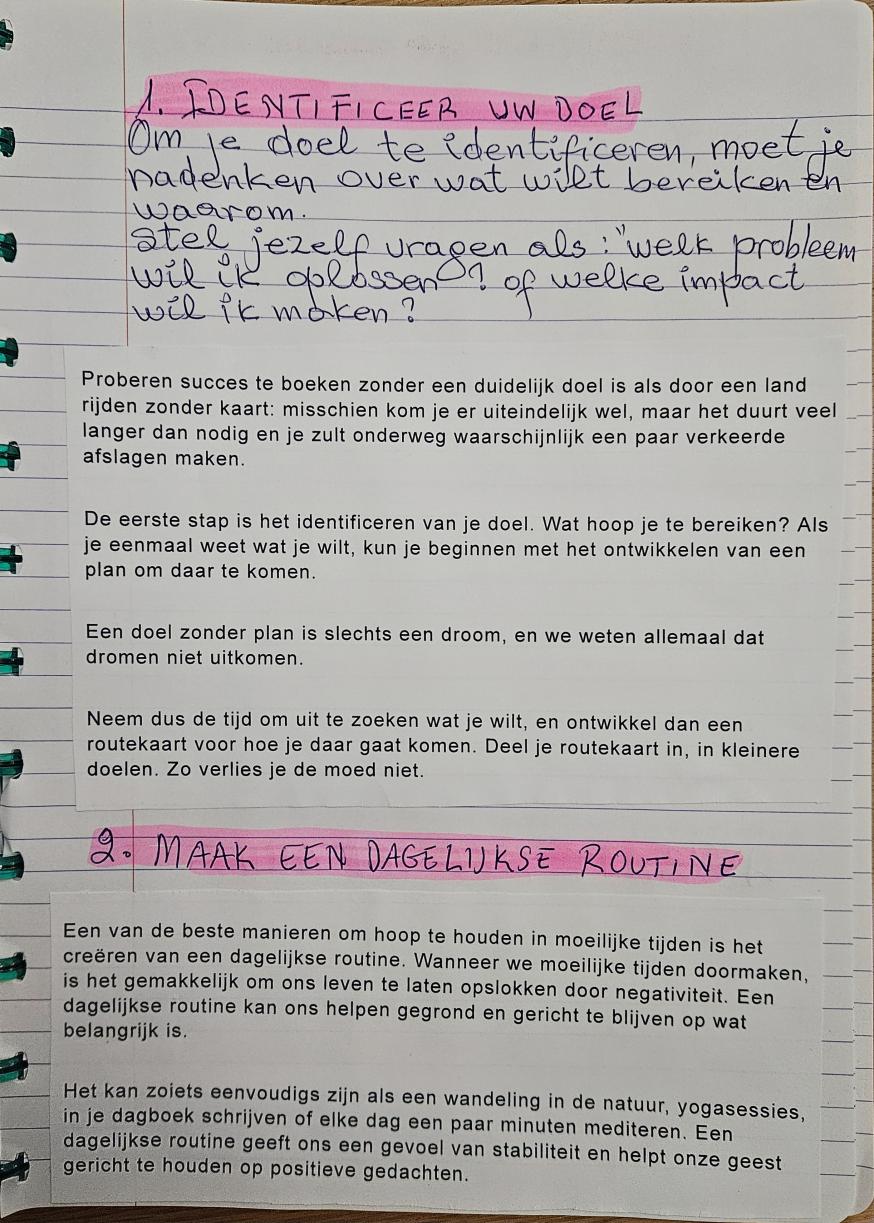 1. IDENTIFICEER UW DOEL
Om je doel te identificeren, moet je
nadenken over wat wilt bereiken en
waarom.
Stel jezelf vragen als : "welk probleem
wil ik oplossen"? of welke impact
wil ik maken?
Proberen succes te boeken zonder een duidelijk doel is als door een land
rijden zonder kaart: misschien kom je er uiteindelijk wel, maar het duurt veel
langer dan nodig en je zult onderweg waarschijnlijk een paar verkeerde
afslagen maken.
De eerste stap is het identificeren van je doel. Wat hoop je te bereiken? Als
je eenmaal weet wat je wilt, kun je beginnen met het ontwikkelen van een
plan om daar te komen.
Een doel zonder plan is slechts een droom, en we weten allemaal dat
dromen niet uitkomen.
Neem dus de tijd om uit te zoeken wat je wilt, en ontwikkel dan een
routekaart voor hoe je daar gaat komen. Deel je routekaart in, in kleinere
doelen. Zo verlies je de moed niet.
2. MAAK EEN DAGELIJKSE ROUTINE
Een van de beste manieren om hoop te houden in moeilijke tijden is het
creëren van een dagelijkse routine. Wanneer we moeilijke tijden doormaken,
is het gemakkelijk om ons leven te laten opslokken door negativiteit. Een
dagelijkse routine kan ons helpen gegrond en gericht te blijven op wat
belangrijk is.
Het kan zoiets eenvoudigs zijn als een wandeling in de natuur, yogasessies,
in je dagboek schrijven of elke dag een paar minuten mediteren. Een
dagelijkse routine geeft ons een gevoel van stabiliteit en helpt onze geest
gericht te houden op positieve gedachten.